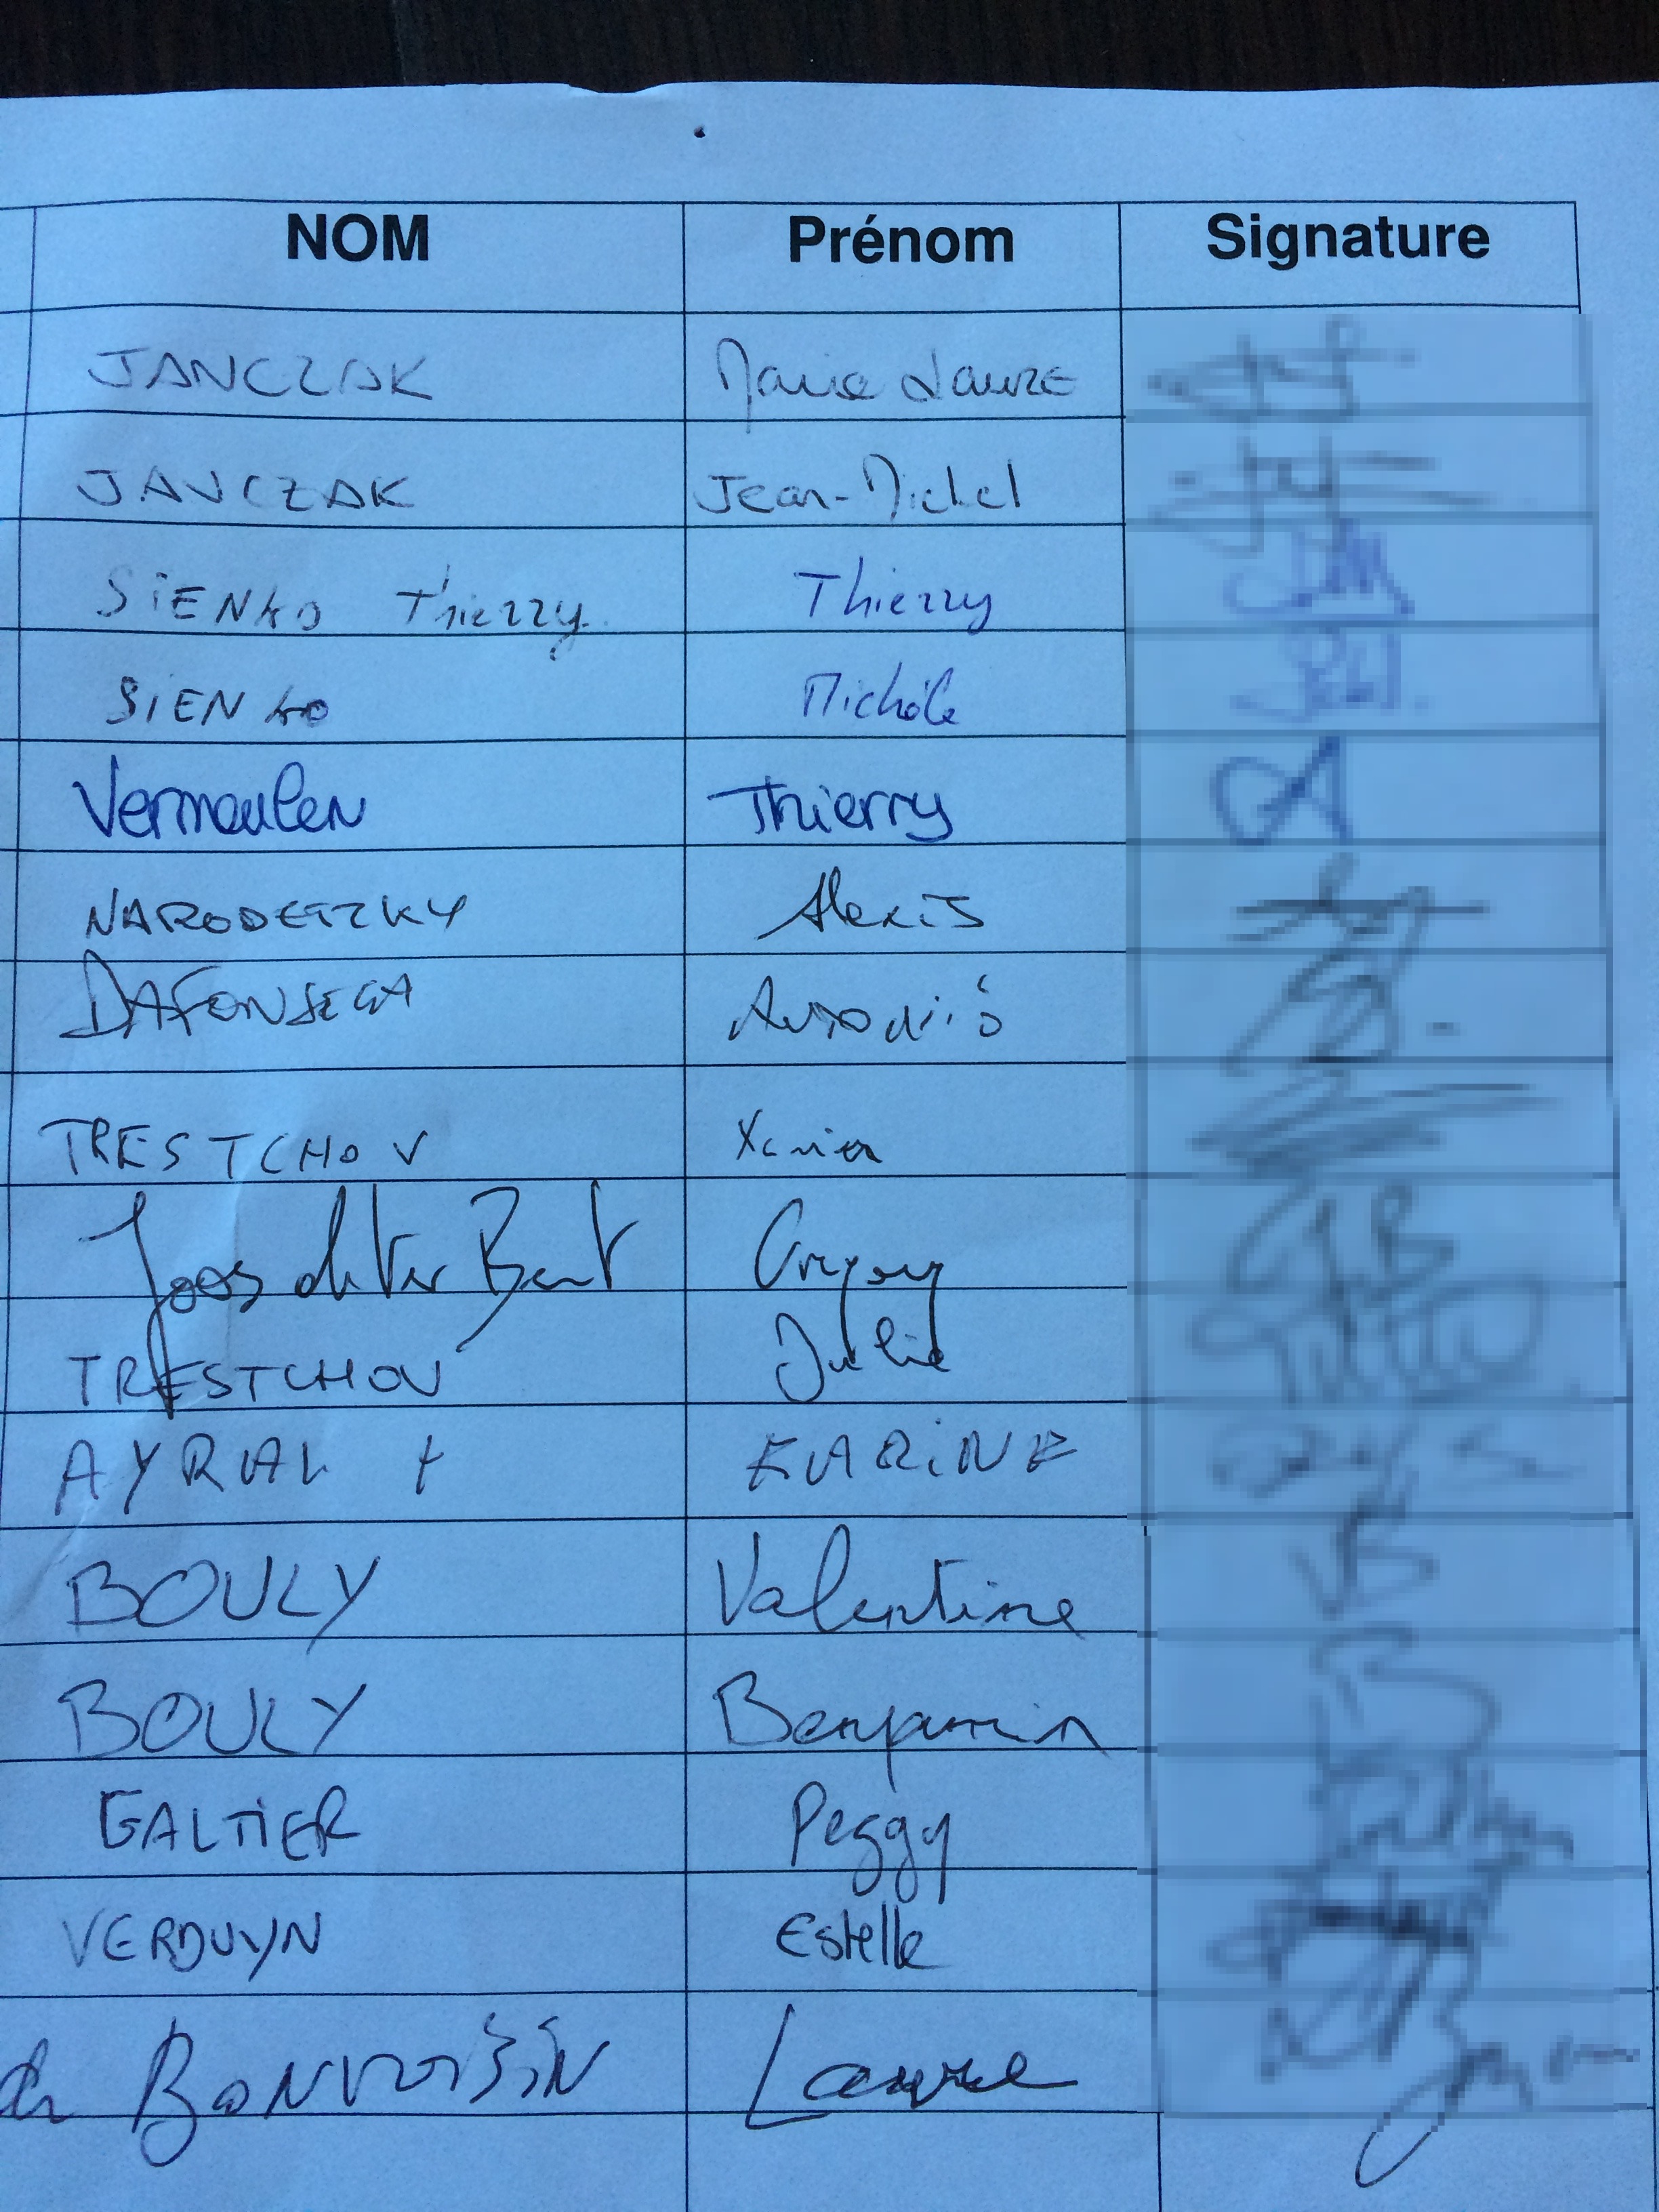 NOM Prénom Signature
JANCZAK Marie Laure
JANCZAK Jean-Michel
SIENKO Thierry Thierry
SIENKO Michèle
Vermeulen Thierry
NARODETZKY Alexis
DAFONSECA Antonio
TRESTCHOV Xavier
Joos de ter Beerst Gregory
TRESTCHOV Julie
AYRAL KARINE
BOULY Valentine
BOULY Benjamin
GALTIER Peggy
VERDUYN Estelle
de BONVOISIN Laure